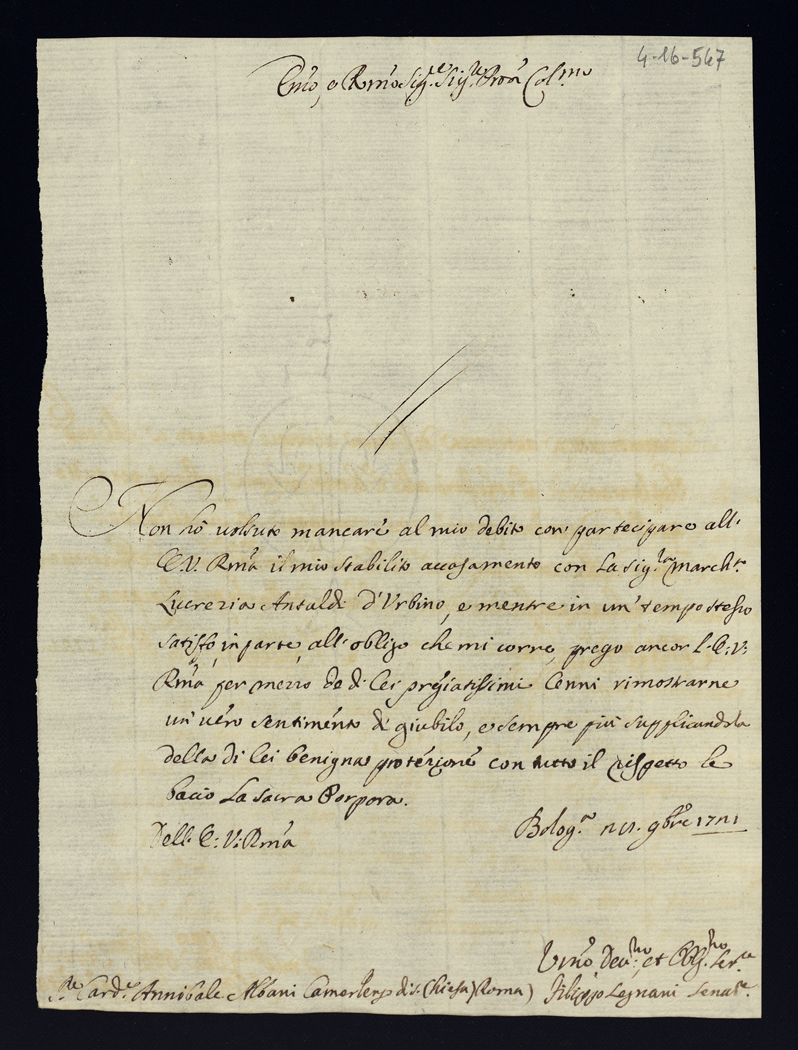 4-16-547
Em̃o, e Rm̃o Sig.r Sig.re Pron̄ Col.mo
Non hò uolsuto mancare al mio debito con partecipare all'
E.V. Rm̃a il mio stabilito accasamento con la Sig.ra March.a
Lucrezia Antaldi d'Urbino, e mentre in un' tempo stesso
satisfò in parte all'obligo che mi corre, prego ancor l'E: V:
Rm̃a, per mezzo de di lei pregiatissimi Cenni rimostrarne
un' uero sentimento di giubilo, e sempre più supplicandola
della di lei benigna protezione con tutto il rispetto le
bacio la Sacra Porpora.
Dell' E: V: Rm̃a
Bolog.a 9bre 1721
Um̃o Deu.mo, et Obl.mo Ser.re
Filippo Legnani Senat.e
Card.e Annibale Albani Camerlengo di S. Chiesa) Roma)